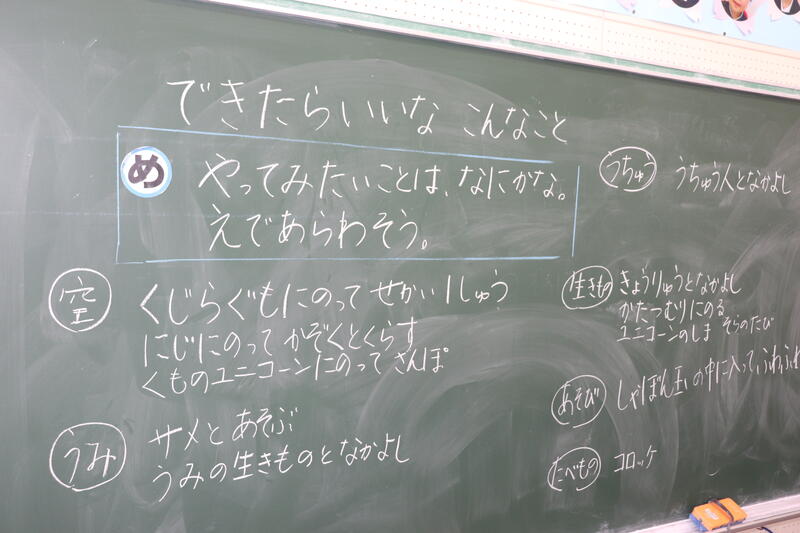 できたらいいな こんなこと
め
やってみたいことは、なにかな。
えであらわそう。
空
くじらぐもにのって せかい1しゅう
にじにのって かぞくとくらす
くものユニコーンにのって さんぽ
うみ
サメと あそぶ
うみの生きものと なかよし
うちゅう
うちゅう人となかよし
生きもの
きょうりゅうとなかよし
かたつむりにのる
ユニコーンのしま そらのたび
あそび
しゃぼん玉の中に入って、ふわふわ
たべもの
コロッケ